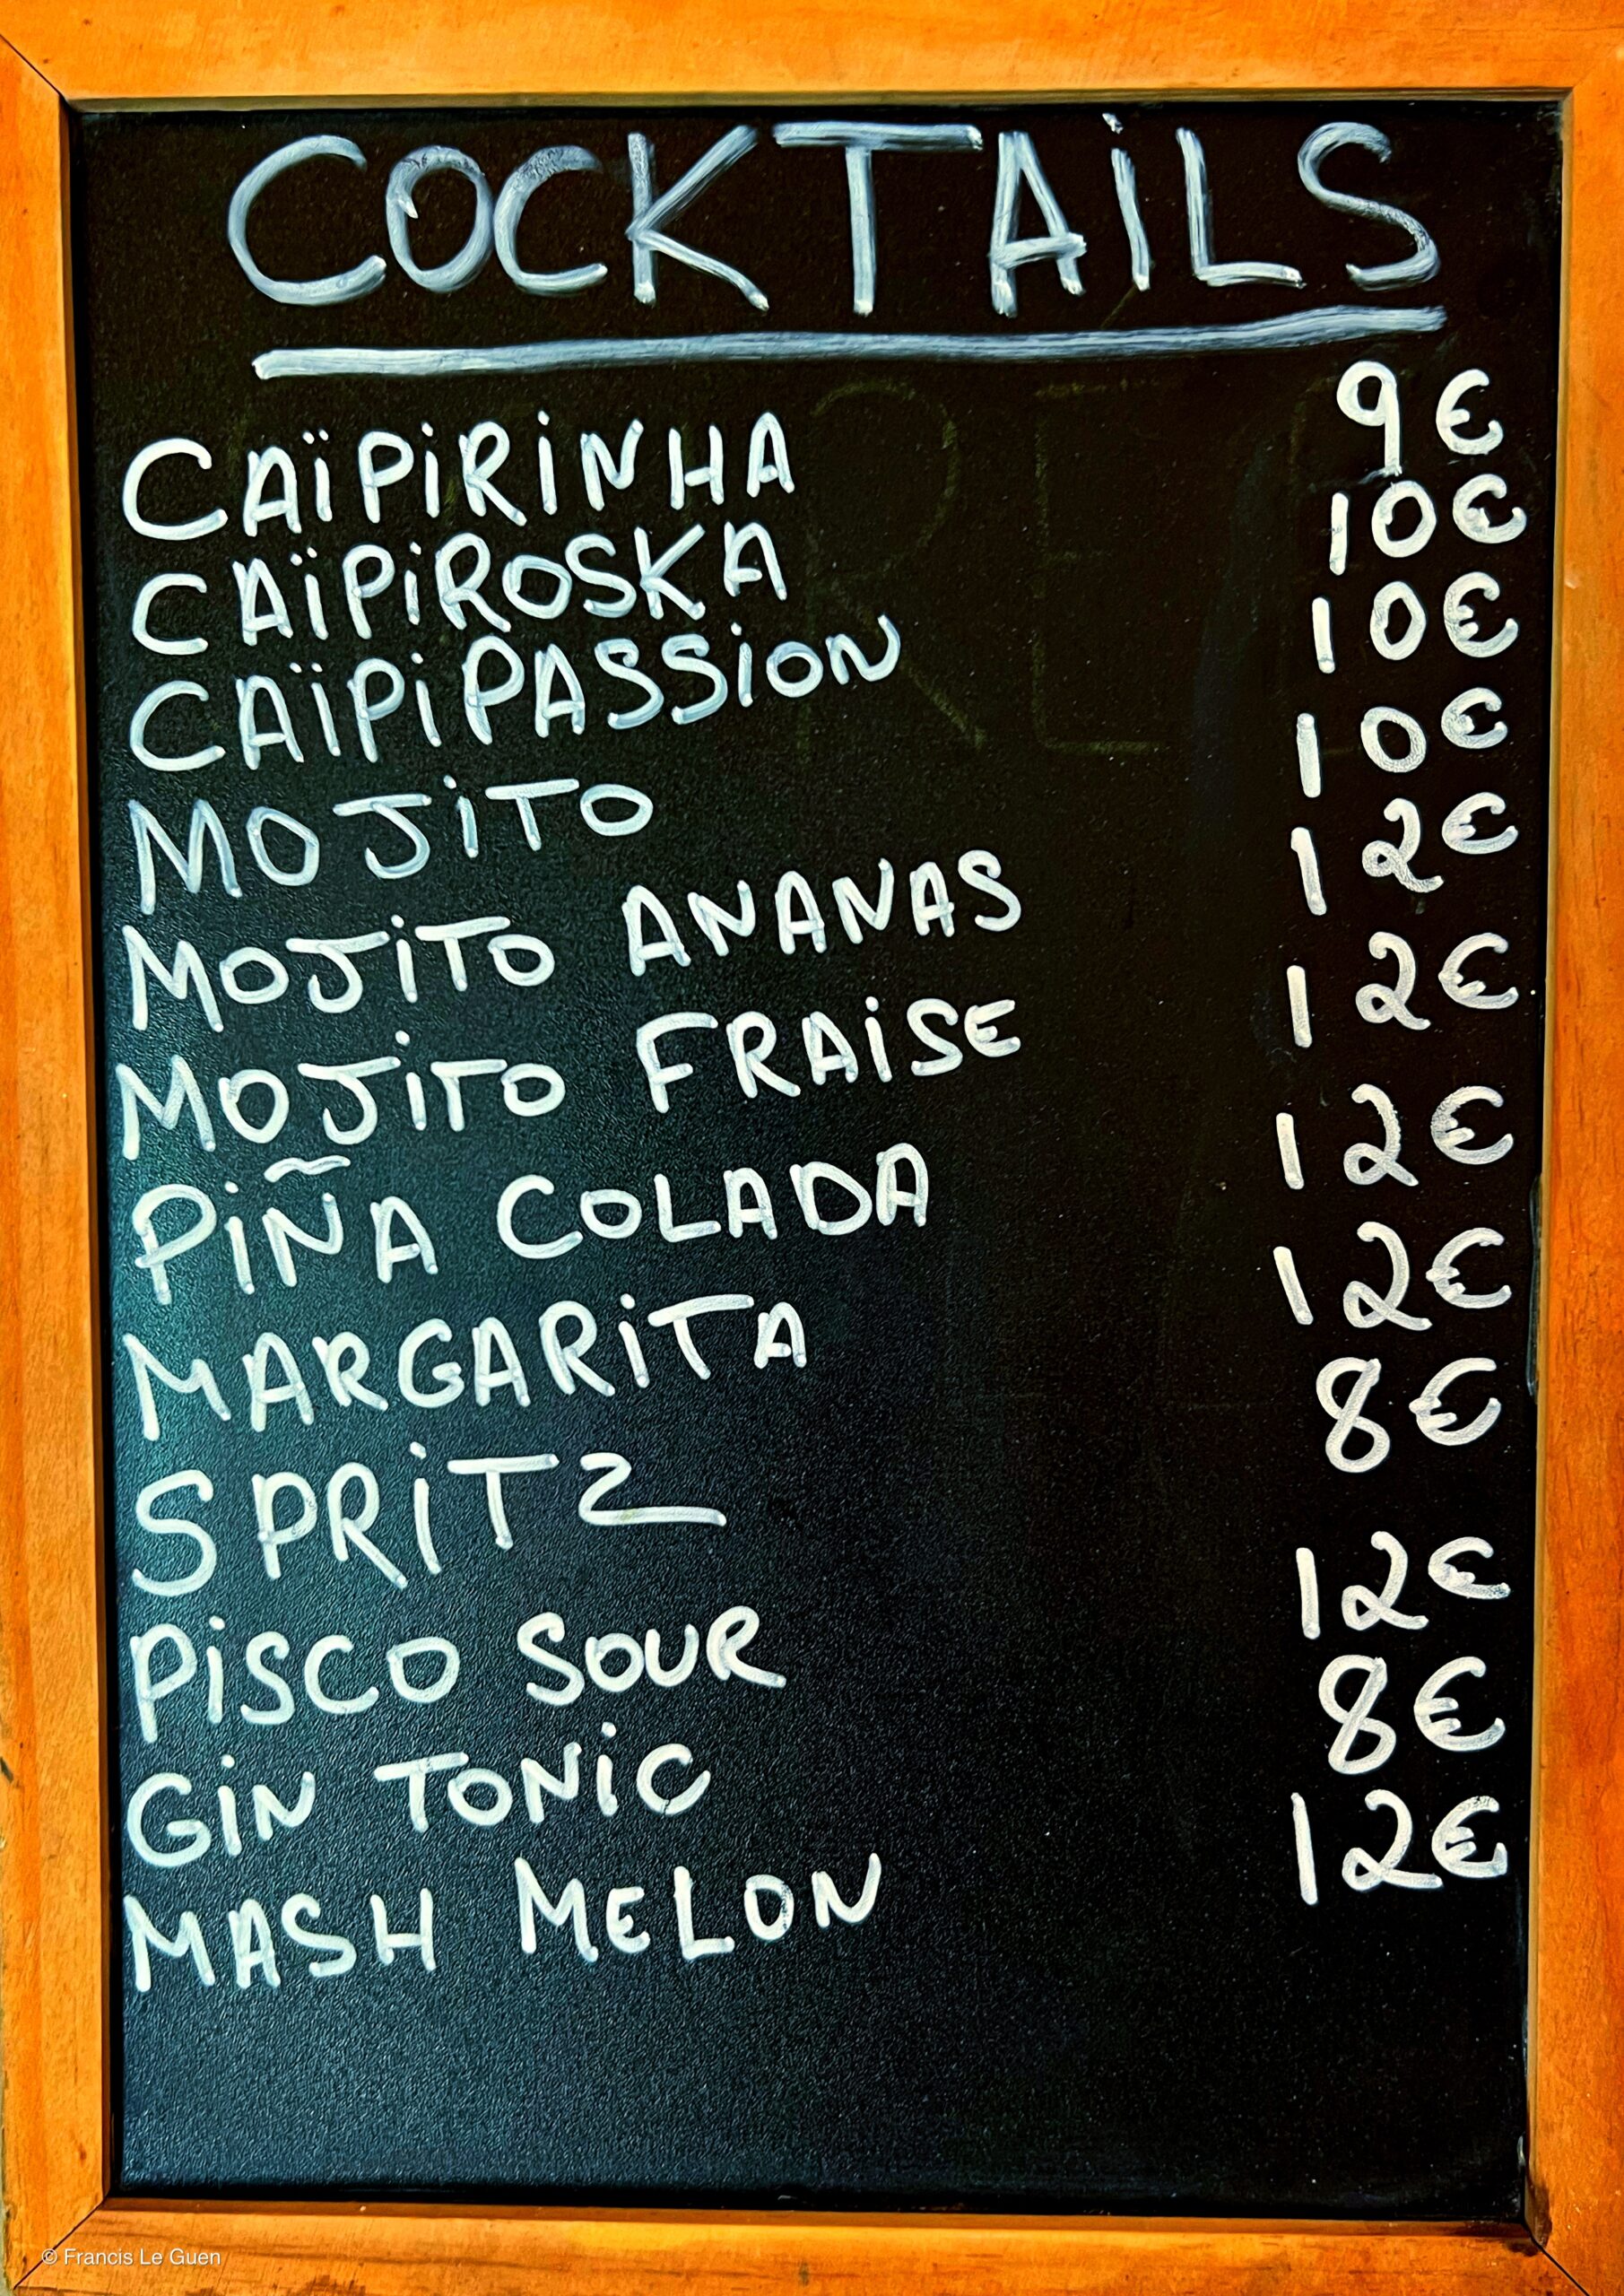 COCKTAiLS
CAÏPiRiNHA 9€
CAÏPiROSKA 10€
CAÏPiPASSiON 10€
MOJiTO 10€
MOJiTO ANANAS 12€
MOJiTO FRAiSE 12€
PiÑA COLADA 12€
MARGARiTA 12€
SPRiTZ 8€
PiSCO SOUR 12€
GiN TONiC 8€
MASH MELON 12€
© Francis Le Guen